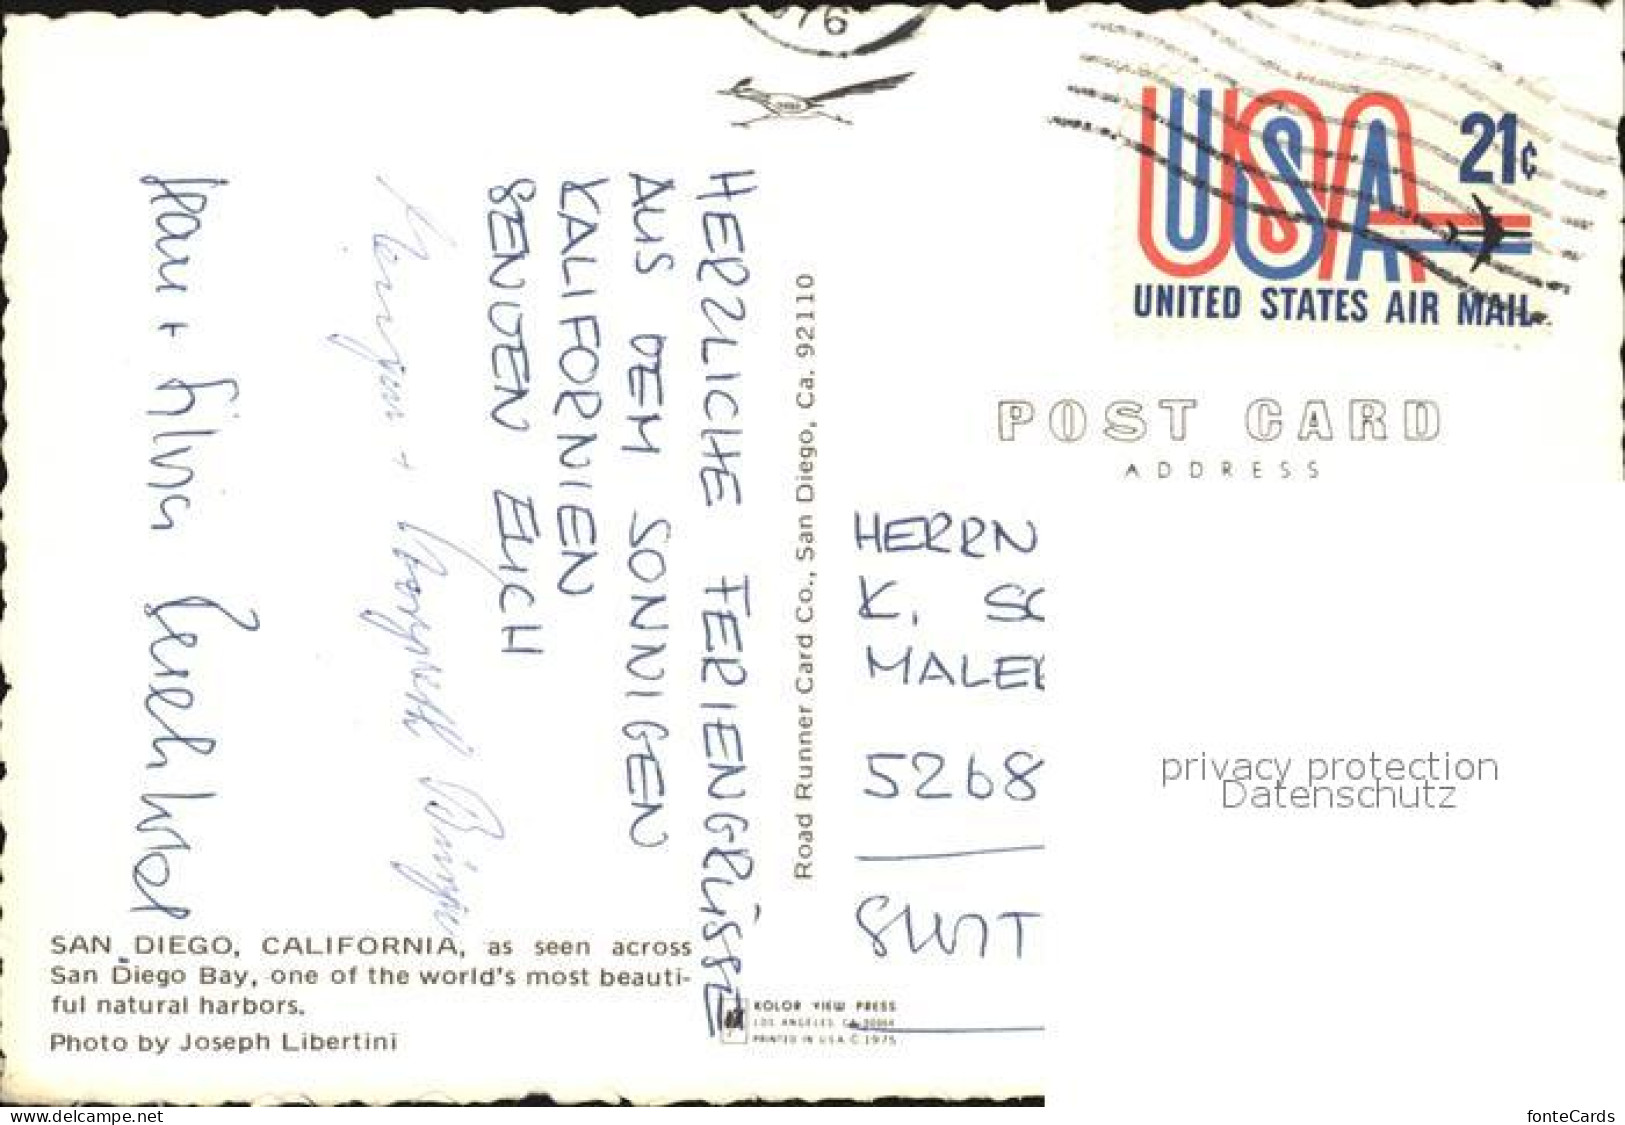 976
USA
21¢
UNITED STATES AIR MAIL
POST CARD
ADDRESS
HERZLICHE FERIENGRÜSSE
AUS DEM SONNIGEN
KALIFORNIEN
SENDEN EUCH
+
+ Silvia
Road Runner Card Co., San Diego, Ca. 92110
HERRN
K. SC
MALE
5268
SWIT
privacy protection
Datenschutz
SAN DIEGO, CALIFORNIA, as seen across
San Diego Bay, one of the world's most beauti-
ful natural harbors.
Photo by Joseph Libertini
KOLOR VIEW PRESS
LOS ANGELES, CA
PRINTED IN U.S.A. © 1975
www.delcampe.net
fonteCards